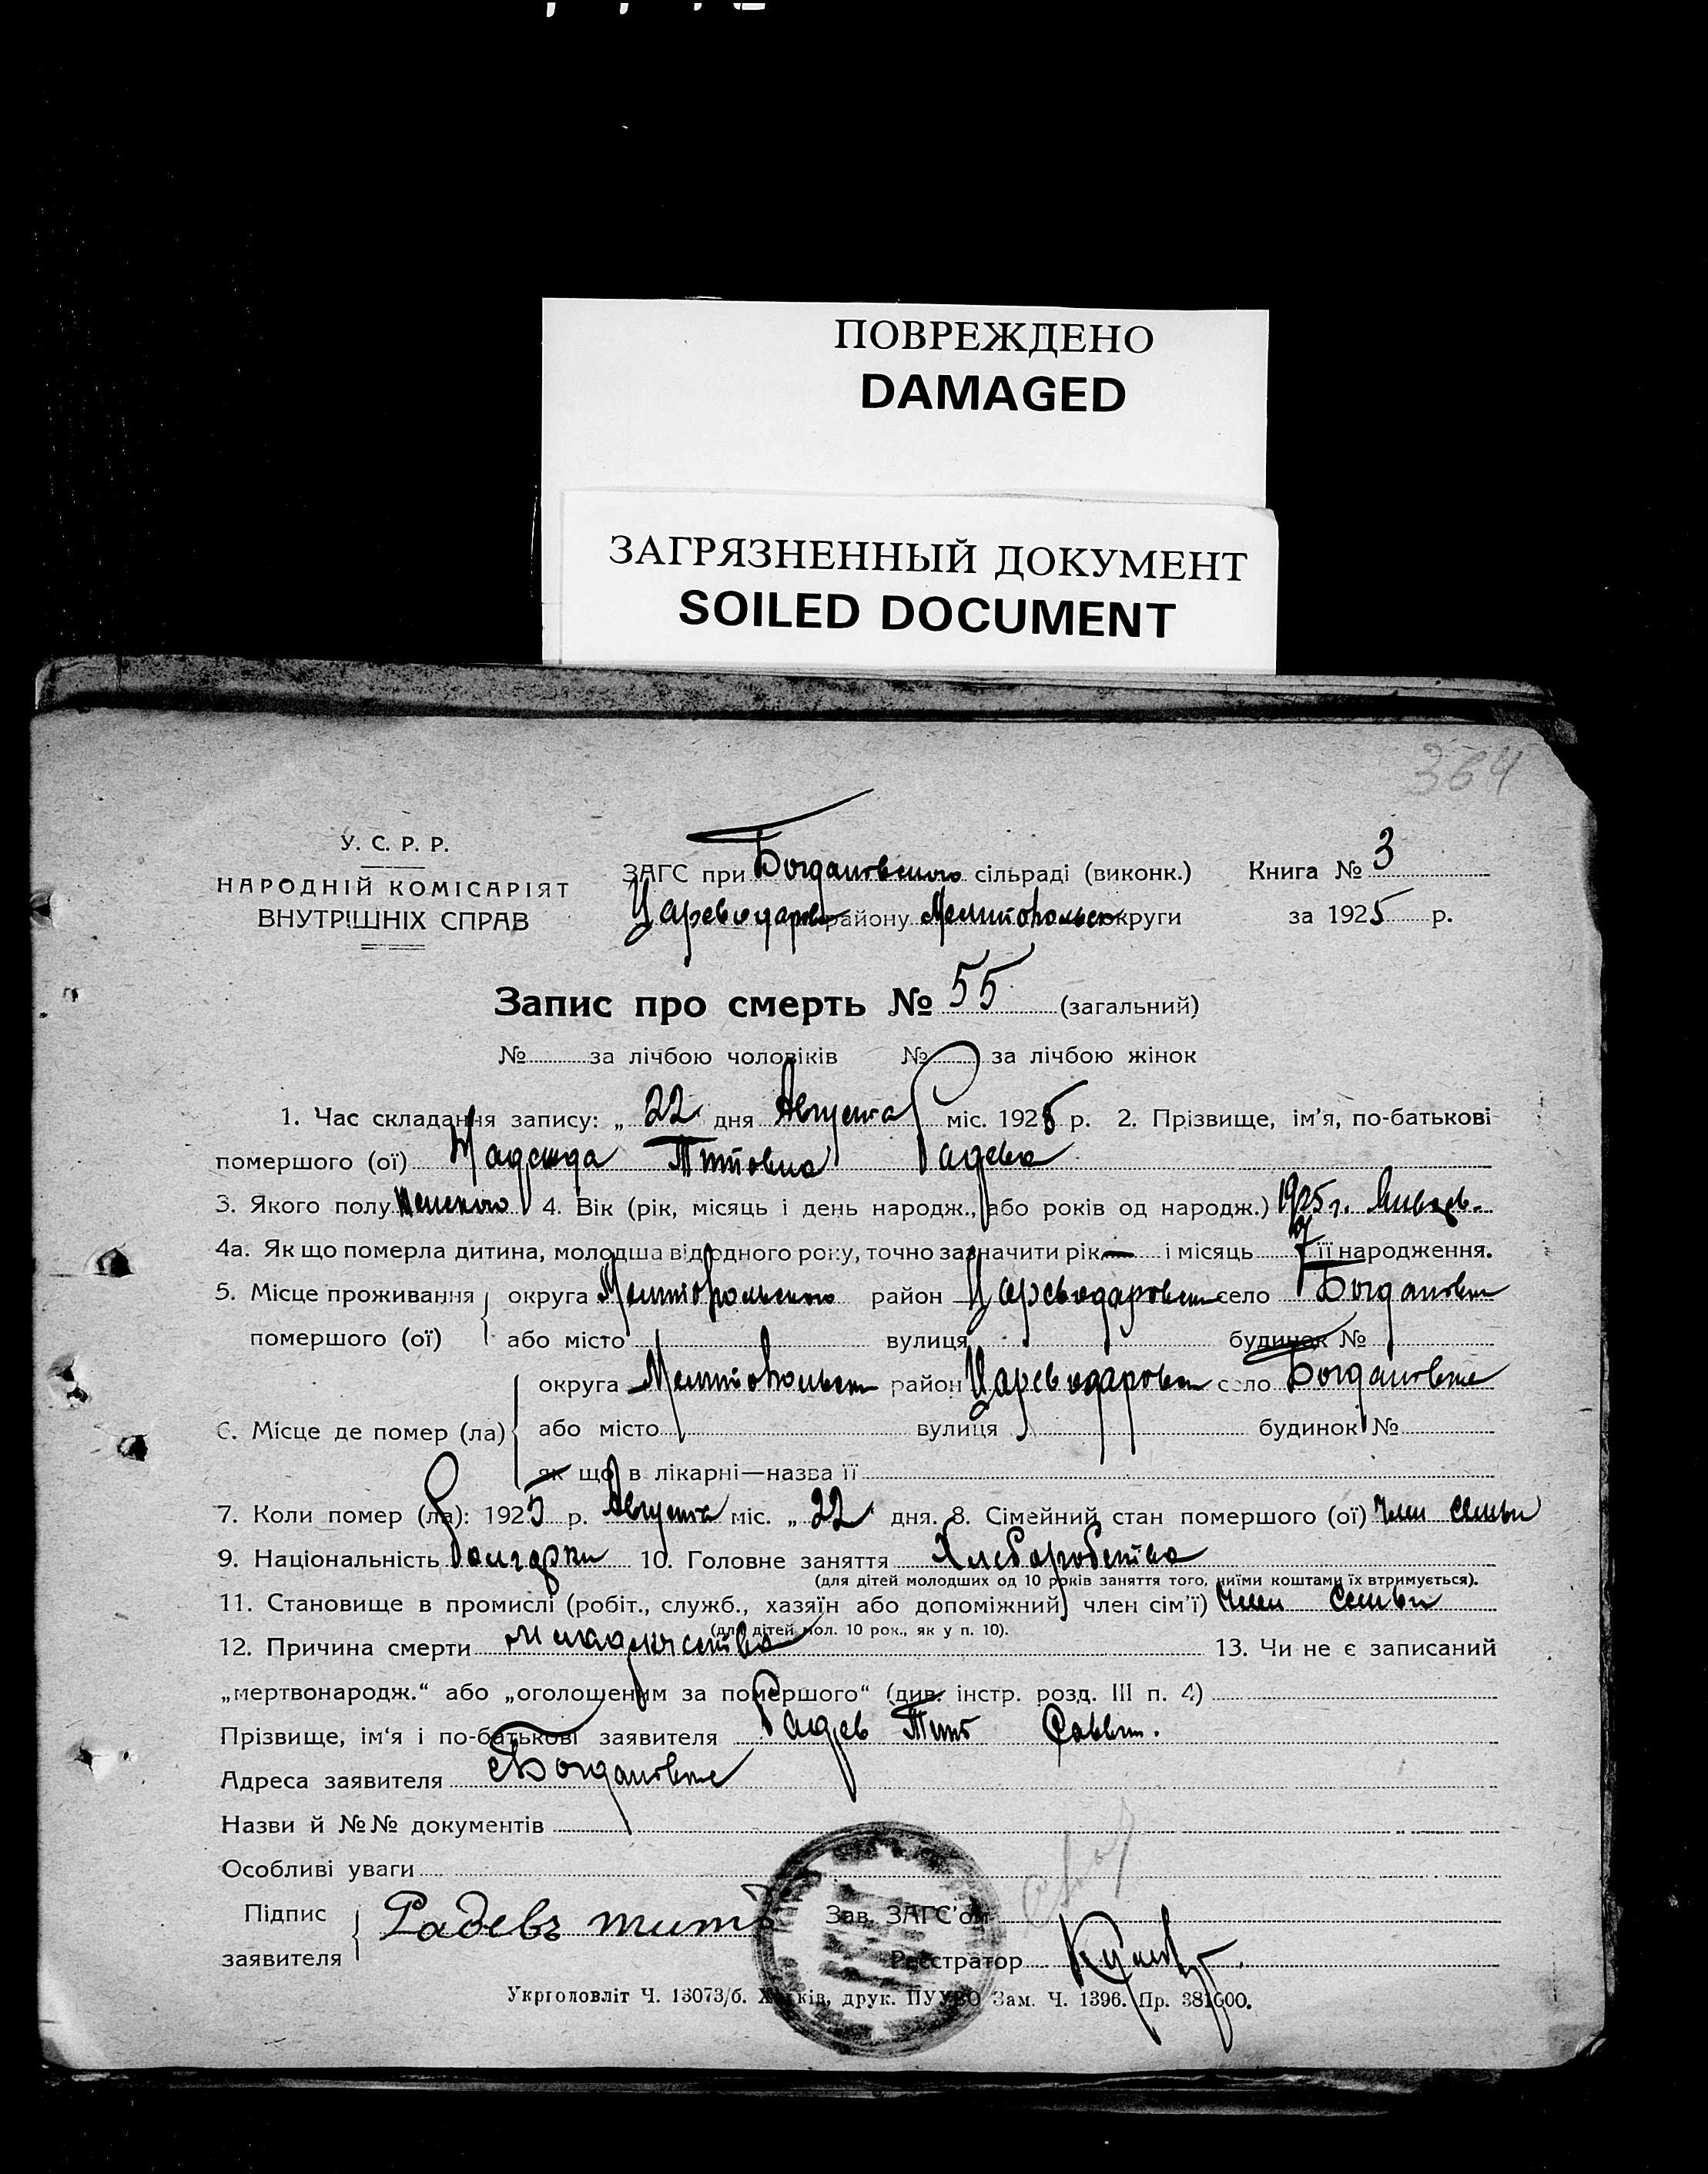 ПОВРЕЖДЕНО
DAMAGED
ЗАГРЯЗНЕННЫЙ ДОКУМЕНТ
SOILED DOCUMENT
364
У. С. Р. Р.
НАРОДНІЙ КОМІСАРІЯТ
ВНУТРІШНІХ СПРАВ
ЗАГС при Богдановского сільраді (виконк.) Книга № 3
району округи за 1925 р.
Запис про смерть № 55 (загальний)
№ за лічбою чоловіків № за лічбою жінок
1. Час складання запису: „ 22 дня Августа міс. 1925 р. 2. Прізвище, ім'я, по-батькові
помершого (ої) Надежда Титовна Радева
3. Якого полу женского 4. Вік (рік, місяць і день народж., або років од народж.) 1925 г. Январ.
4а. Як що померла дитина, молодша від одного року, точно зазначити рік — і місяць 7 її народження.
5. Місце проживання округа Мелитопольского район село
помершого (ої) або місто вулиця будинок №
округа район село Богдановке
6. Місце де помер (ла) або місто вулиця будинок №
як що в лікарні—назва її
7. Коли помер (ла): 1925 р. Августа міс. „ 22 дня. 8. Сімейний стан помершого (ої) член семьи
9. Національність 10. Головне заняття
(для дітей молодших од 10 років заняття того, чиїми коштами їх втримується).
11. Становище в промислі (робіт., служб., хазяїн або допоміжний член сім'ї) член семьи
(для дітей мол. 10 рок., як у п. 10).
12. Причина смерти 13. Чи не є записаний
„мертвонародж.“ або „оголошеним за помершого“ (див. інстр. розд. III п. 4)
Прізвище, ім'я і по-батькові заявителя Радев Тит Саввич.
Адреса заявителя с Богдановке
Назви й №№ документів
Особливі уваги
Підпис Радевъ титъ Зав. ЗАГС'ом
заявителя Реєстратор
Укрголовліт Ч. 13073/б. Харків, друк. ПУУВО Зам. Ч. 1396. Пр. 381000.